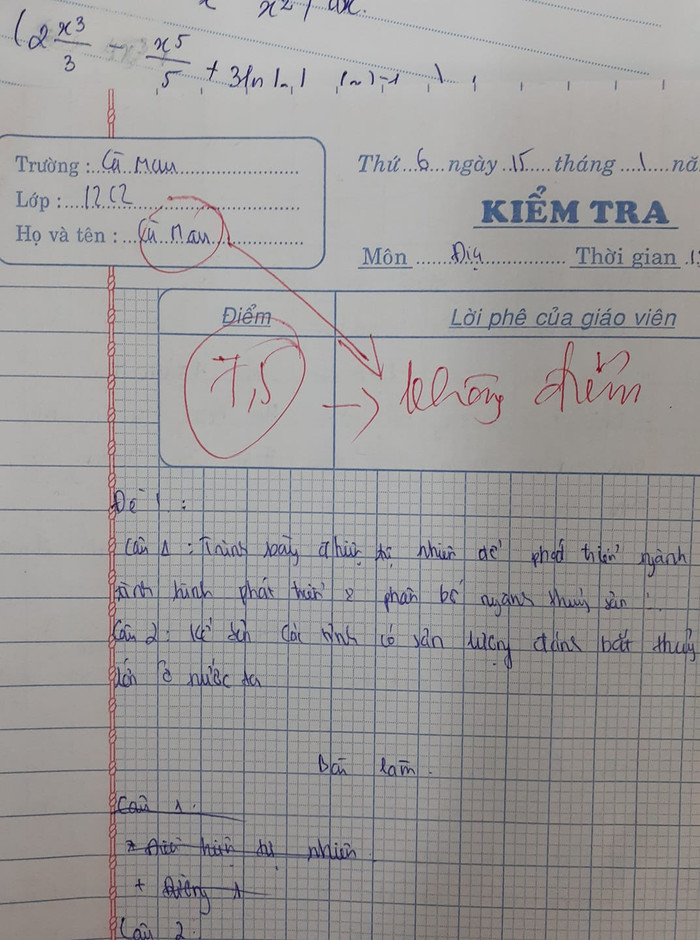 x² / dx.
(2 x³/3 - x⁵/5 + 3ln
Trường : Cà Mau
Lớp : 12C2
Họ và tên : Cà Mau
Thứ 6 ngày 15 tháng 1 nă
KIỂM TRA
Môn Địa Thời gian 1
Điểm
Lời phê của giáo viên
7,5
→ không điểm
Đề 1 :
Câu 1 : Trình bày đkiện tự nhiên để phát triển ngành
tình hình phát triển & phân bố ngành thuỷ sản
Câu 2 : Kể tên các tỉnh có sản lượng đánh bắt thuỷ
lớn ở nước ta
Bài làm.
Câu 1.
* Điều kiện tự nhiên
+
Câu 2: